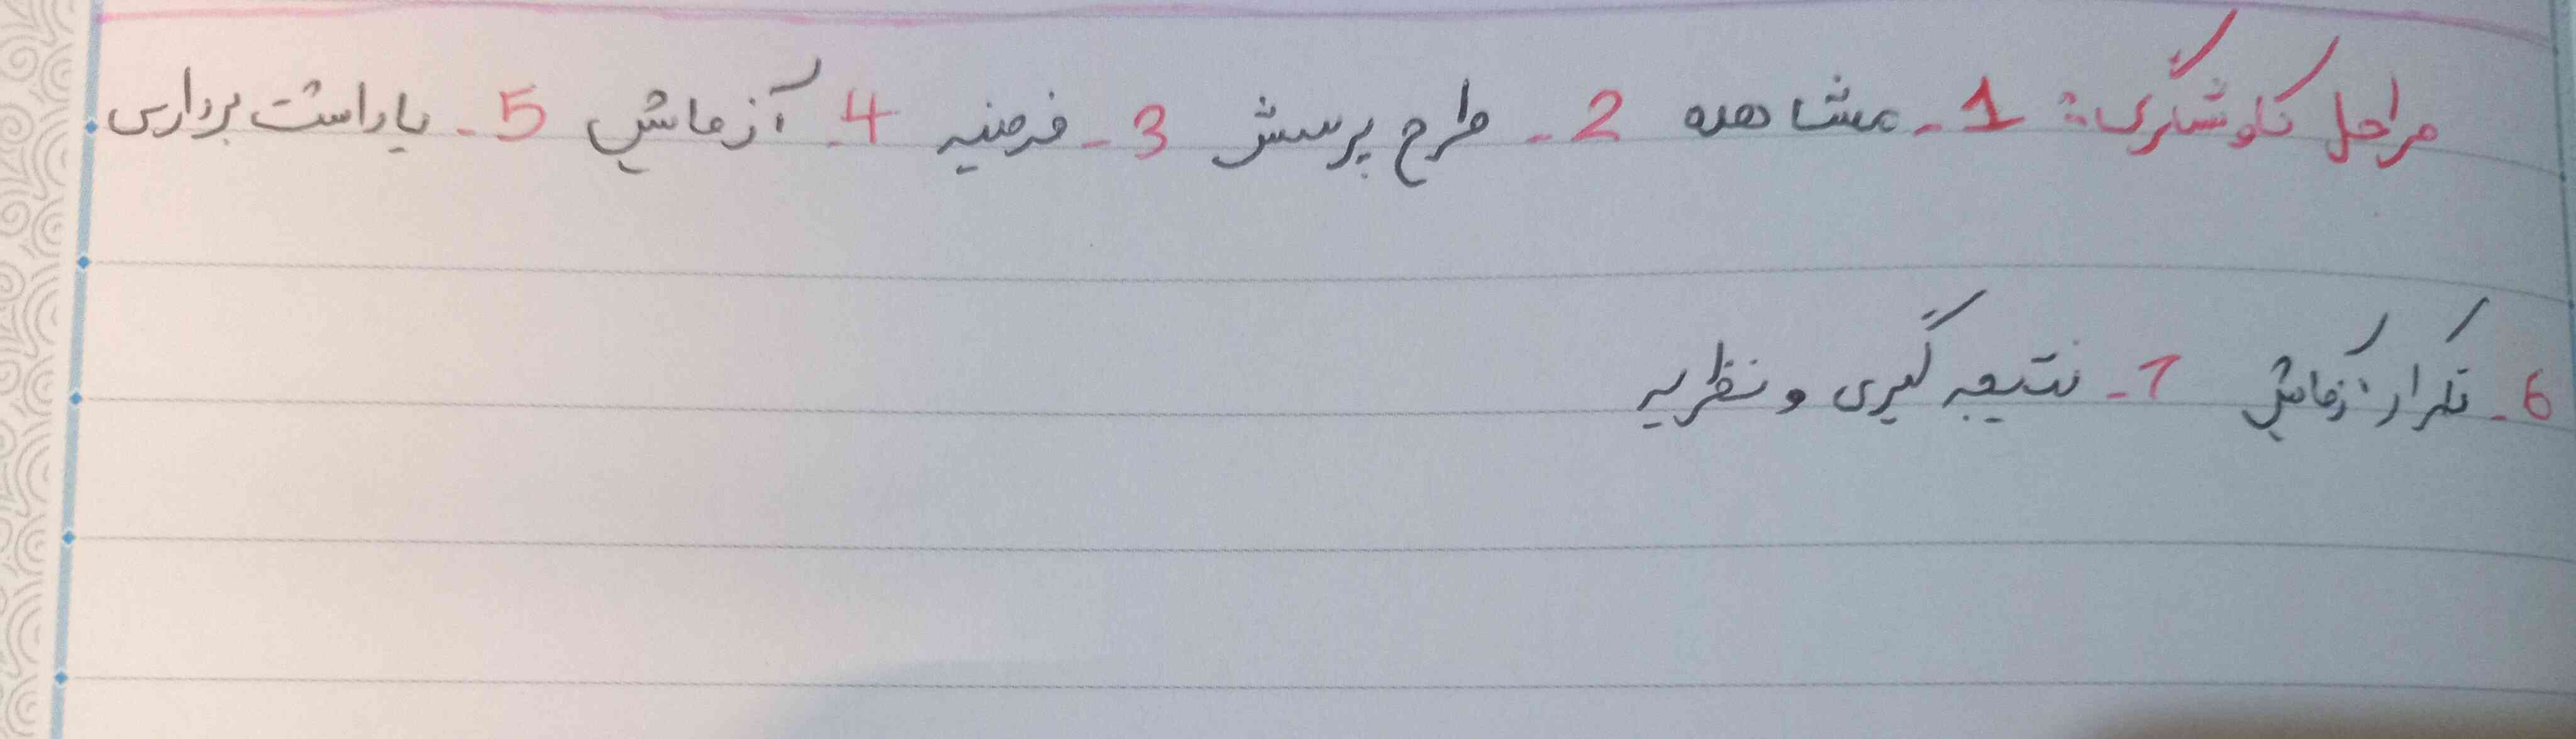 مراحل کاوشگری: 1_ مشاهده 2_ طرح پرسش 3_ فرضیه 4_ آزمایش 5_ یاداشت برداری
6_ تکرار آزمایش 7_ نتیجه گیری و نظریه